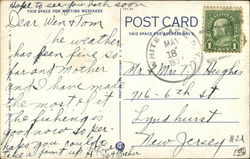 Hope to see you both soon
THIS SPACE FOR WRITING MESSAGES
POST CARD
THIS SPACE FOR ADDRESS ONLY
Dear Wen & Tom
The weather
has been fine so
far and Mother
and I have made
the most of it
the fishing is
good now so per-
haps you could
take a trip up
Mother
WHITE
MAY
18
Mr & Mrs T J Hughes
716-6th St
Lyndhurst
New Jersey
1